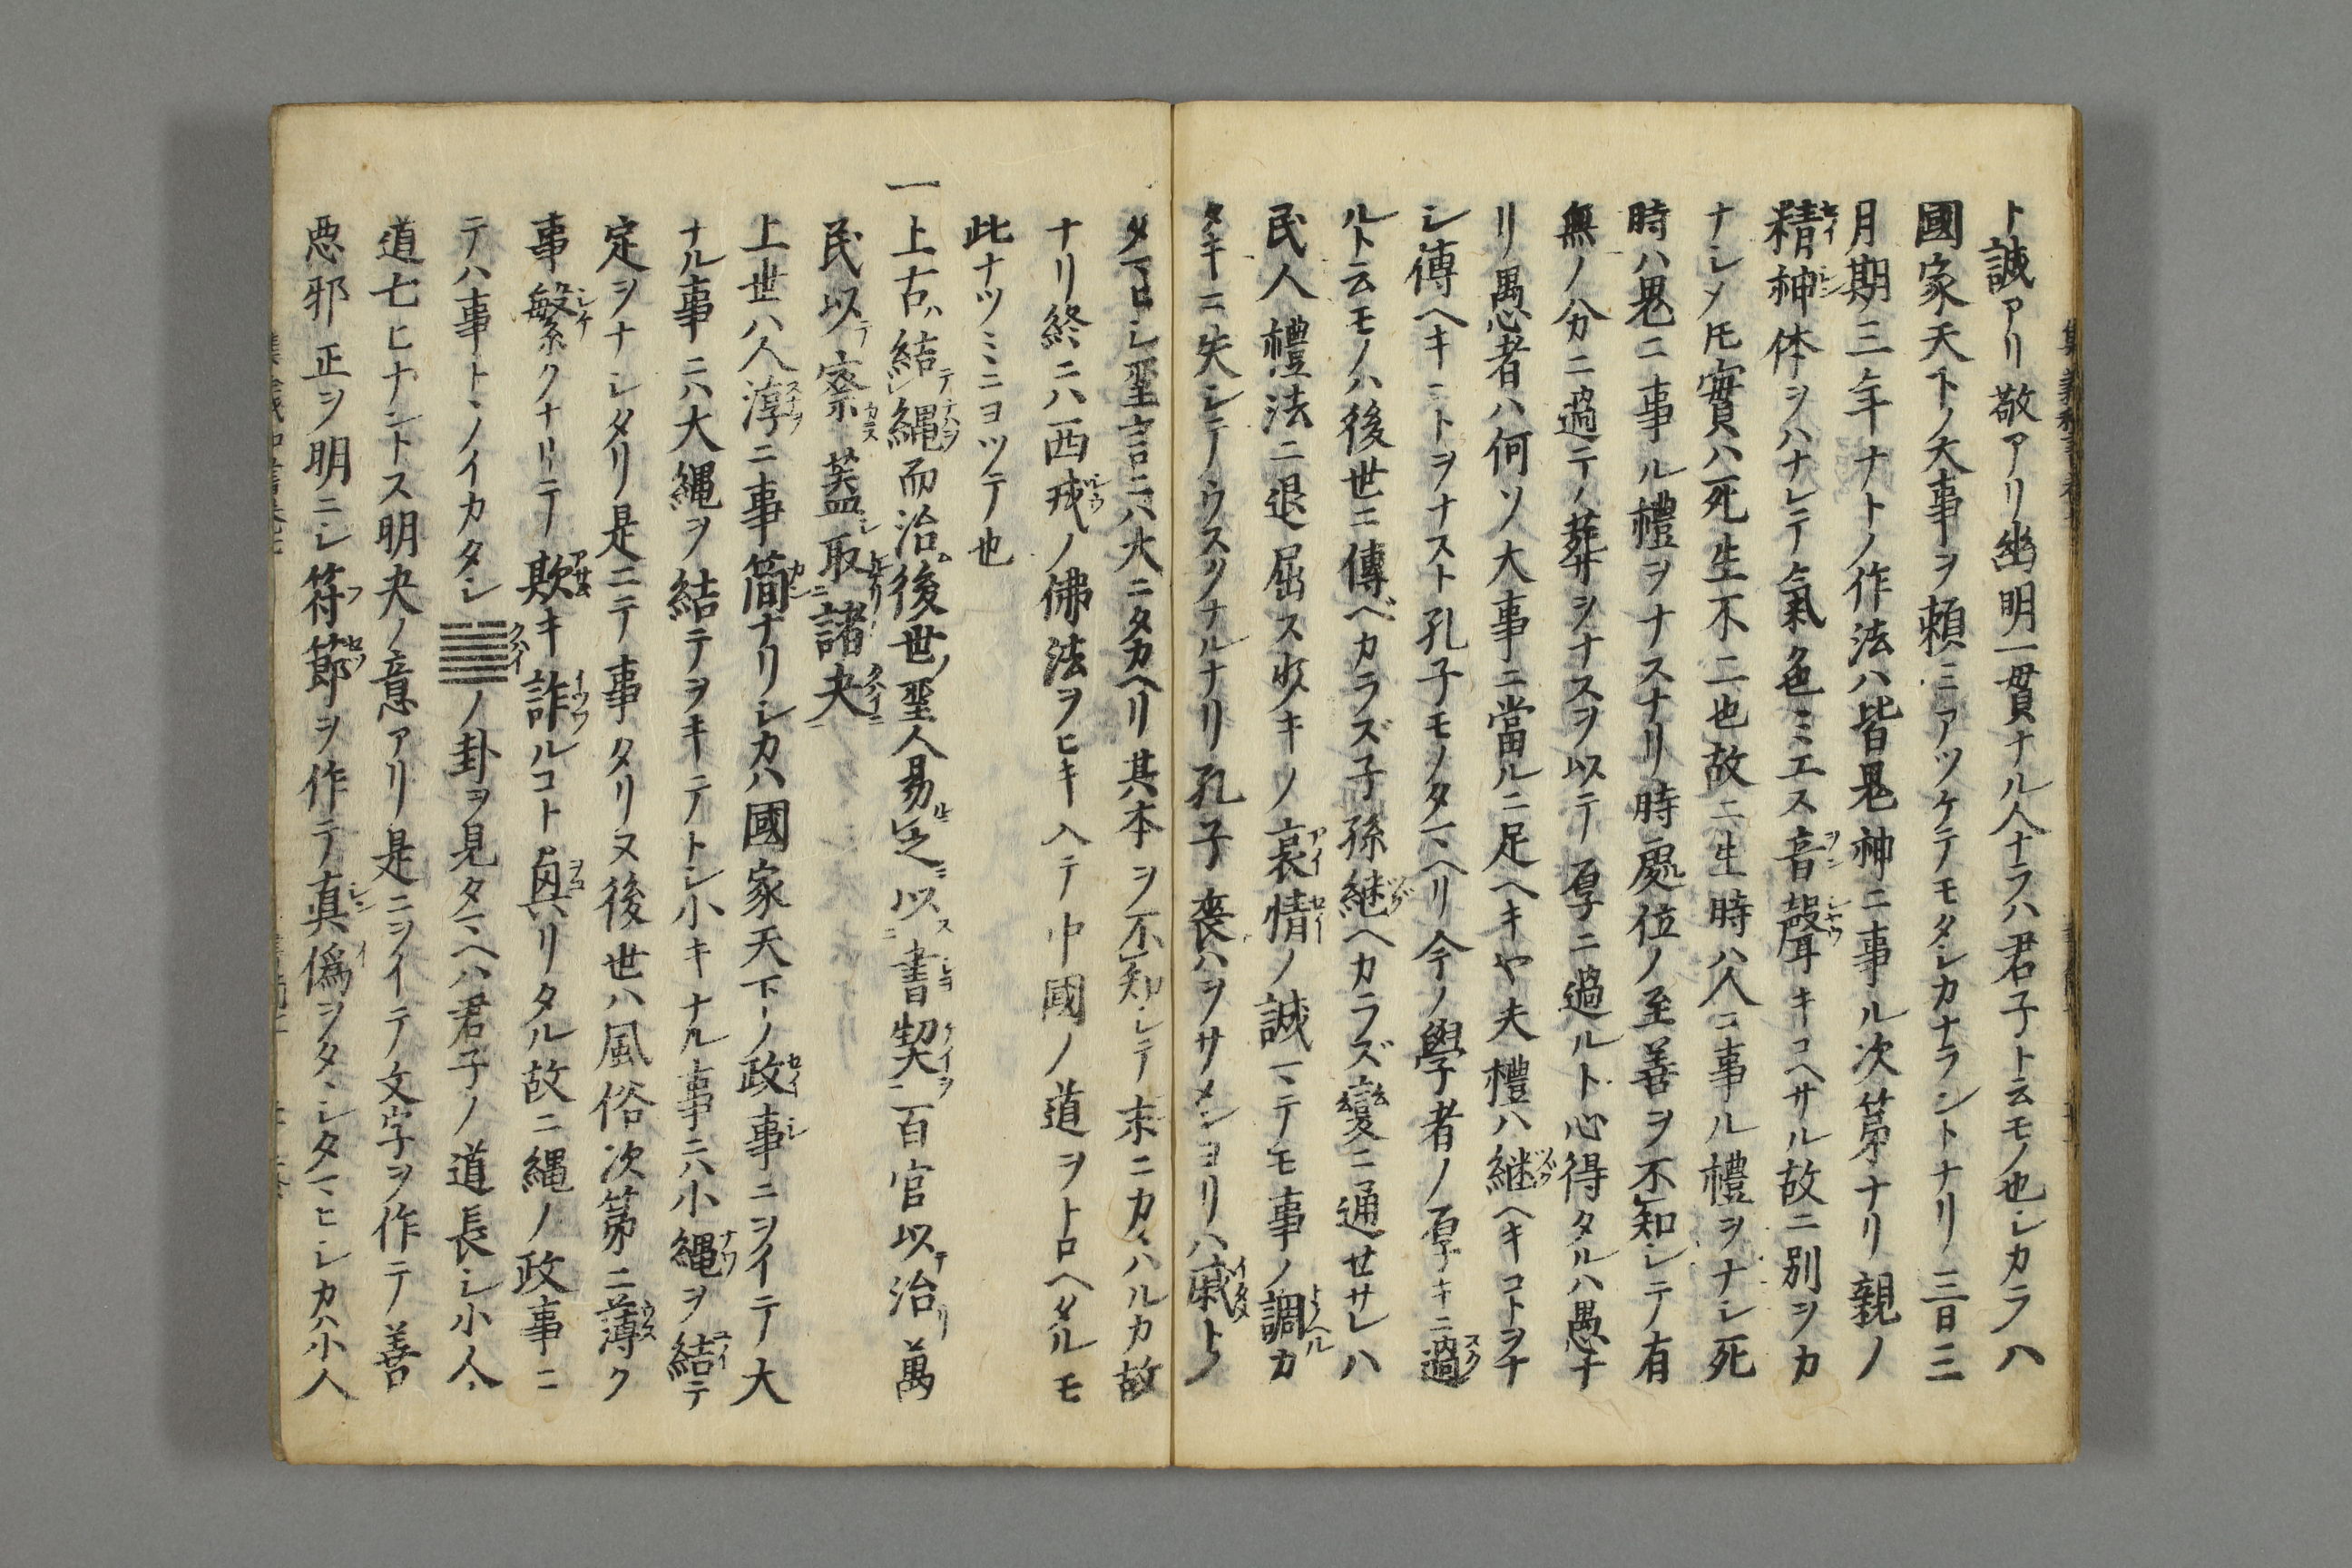 ト誠アリ敬アリ幽明一貫ナル人ナラハ君子ト云モノ也シカラハ
國家天下ノ大事ヲ頼ミアツケテモタシカナラントナリ三日三
月期三年ナトノ作法ハ皆鬼神ニ事ル次第ナリ親ノ
精神体ヲハナレテ氣色ミエス音聲キコヘサル故ニ別ヲカ
ナシメ𪜈實ハ死生不二也故ニ生時ハ人ニ事ル禮ヲナシ死
時ハ鬼ニ事ル禮ヲナスナリ時處位ノ至善ヲ不知シテ有
無ノ分ニ過テノ葬ヲナスヲ以テ厚ニ過ルト心得タルハ愚ナ
リ愚者ハ何ソ大事ニ當ルニ足ヘキヤ夫禮ハ継ヘキコトヲナ
シ傳ヘキコトヲナスト孔子モノタマヘリ今ノ學者ノ厚キニ過
ルト云モノハ後世ニ傳ベカラズ子孫継ヘカラズ變ニ通セサレハ
民人禮法ニ退屈ス次キノ哀情ノ誠マテモ事ノ調カ
タキニ失シテウスクナルナリ孔子喪ハヲサメンヨリハ戚トノ
タマヒシ聖言ニハ大ニタカヘリ其本ヲ不知シテ末ニカヽハルカ故
ナリ終ニハ西戎ノ佛法ヲヒキ入テ中國ノ道ヲトロヘタルモ
此ナツミニヨツテ也
一上古ハ結縄而治後世ノ聖人易之以書契百官以治萬
民以察蓋取諸夬
上世ハ人淳ニ事簡ナリシカハ國家天下ノ政事ニヲイテ大
ナル事ニハ大縄ヲ結テヲキテトシ小キナル事ニハ小縄ヲ結テ
定ヲナシタリ是ニテ事タリヌ後世ハ風俗次第ニ薄ク
事繁クナリテ欺キ詐ルコト𥁃リタル故ニ縄ノ政事ニ
テハ事トヽノイカタシ䷪ノ卦ヲ見タマヘハ君子ノ道長シ小人ヽ
道七ヒナントス明夬ノ意アリ是ニヲイテ文字ヲ作テ善
悪邪正ヲ明ニシ符節ヲ作テ真偽ヲタヽシタマヒシカハ小人